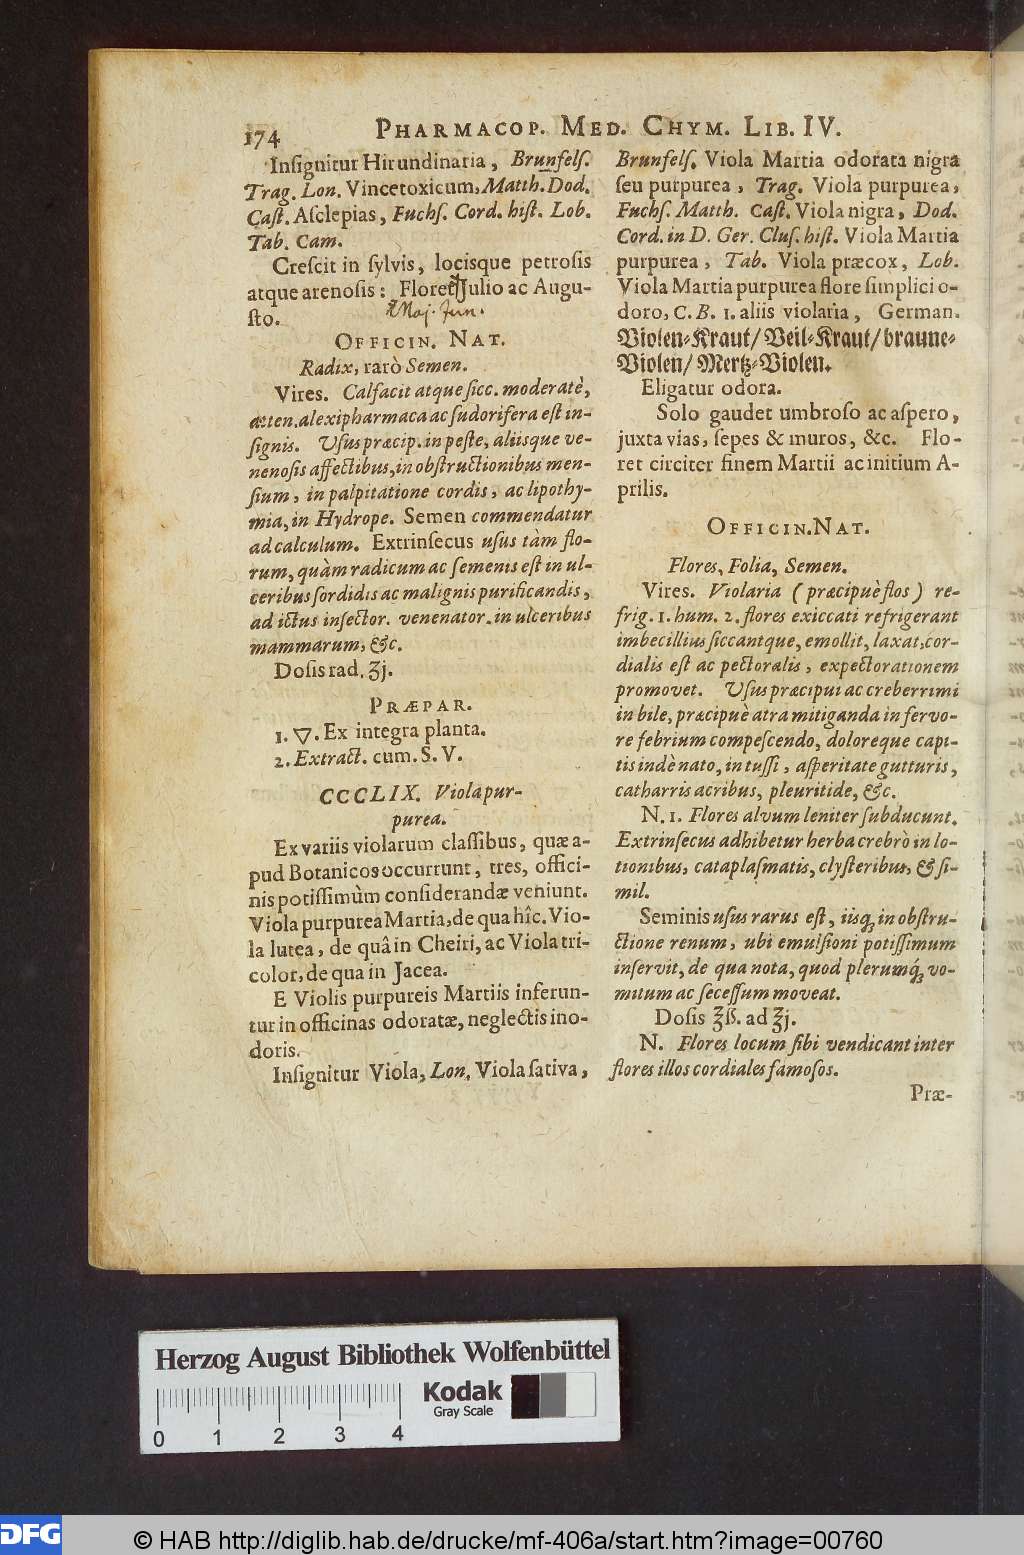 174 PHARMACOP. MED. CHYM. LIB. IV.
Inſignitur Hirundinaria, Brunfelſ.
Trag. Lon. Vincetoxicum, Matth. Dod.
Caſt. Aſclepias, Fuchſ. Cord. hiſt. Lob.
Tab. Cam.
Creſcit in ſylvis, locisque petroſis
atque arenoſis: Floret Julio ac Augu-
ſto.
Maj. Jun.
OFFICIN. NAT.
Radix, rarò Semen.
Vires. Calfacit atque ſicc. moderatè,
æ ten. alexipharmaca ac ſudorifera eſt in-
ſignis. Uſus præcip. in peſte, aliisque ve-
nenoſis affectibus, in obſtructionibus men-
ſium, in palpitatione cordis, ac lipothy-
mia, in Hydrope. Semen commendatur
ad calculum. Extrinſecus uſus tàm flo-
rum, quàm radicum ac ſemenis eſt in ul-
ceribus ſordidis ac malignis purificandis,
ad ictus inſector. venenator. in ulceribus
mammarum, &c.
Doſis rad. ʒj.
PRÆPAR.
1. ▽. Ex integra planta.
2. Extract. cum. S. V.
CCCLIX. Viola pur-
purea.
Ex variis violarum claſſibus, quæ a-
pud Botanicos occurrunt, tres, offici-
nis potiſſimùm conſiderandæ veniunt.
Viola purpurea Martia, de qua hîc. Vio-
la lutea, de quâ in Cheiri, ac Viola tri-
color, de qua in Jacea.
E Violis purpureis Martiis inferun-
tur in officinas odoratæ, neglectis ino-
doris.
Inſignitur Viola, Lon. Viola ſativa,
Brunfelſ. Viola Martia odorata nigra
ſeu purpurea, Trag. Viola purpurea,
Fuchſ. Matth. Caſt. Viola nigra, Dod.
Cord. in D. Ger. Cluſ. hiſt. Viola Martia
purpurea, Tab. Viola præcox, Lob.
Viola Martia purpurea flore ſimplici o-
doro, C. B. 1. aliis violaria, German.
Violen-Kraut/ Veil-Kraut/ braune-
Violen/ Mertz-Violen.
Eligatur odora.
Solo gaudet umbroſo ac aſpero,
juxta vias, ſepes & muros, &c. Flo-
ret circiter finem Martii ac initium A-
prilis.
OFFICIN. NAT.
Flores, Folia, Semen.
Vires. Violaria (præcipuè flos) re-
frig. 1. hum. 2. flores exiccati refrigerant
imbecillius ſiccantque, emollit, laxat, cor-
dialis eſt ac pectoralis, expectorationem
promovet. Uſus præcipui ac creberrimi
in bile, præcipuè atra mitiganda in fervo-
re febrium compeſcendo, doloreque capi-
tis indè nato, in tuſſi, aſperitate gutturis,
catharris acribus, pleuritide, &c.
N. 1. Flores alvum leniter ſubducunt.
Extrinſecus adhibetur herba crebrò in lo-
tionibus, cataplaſmatis, clyſteribus, & ſi-
mil.
Seminis uſus rarus eſt, iisq; in obſtru-
ctione renum, ubi emulſioni potiſſimum
inſervit, de qua nota, quod plerumq́; vo-
mitum ac ſeceſſum moveat.
Doſis ʒß. ad ʒj.
N. Flores locum ſibi vendicant inter
flores illos cordiales famoſos.
Præ-
Herzog August Bibliothek Wolfenbüttel
Kodak
Gray Scale
0 1 2 3 4
DFG
© HAB http://diglib.hab.de/drucke/mf-406a/start.htm?image=00760